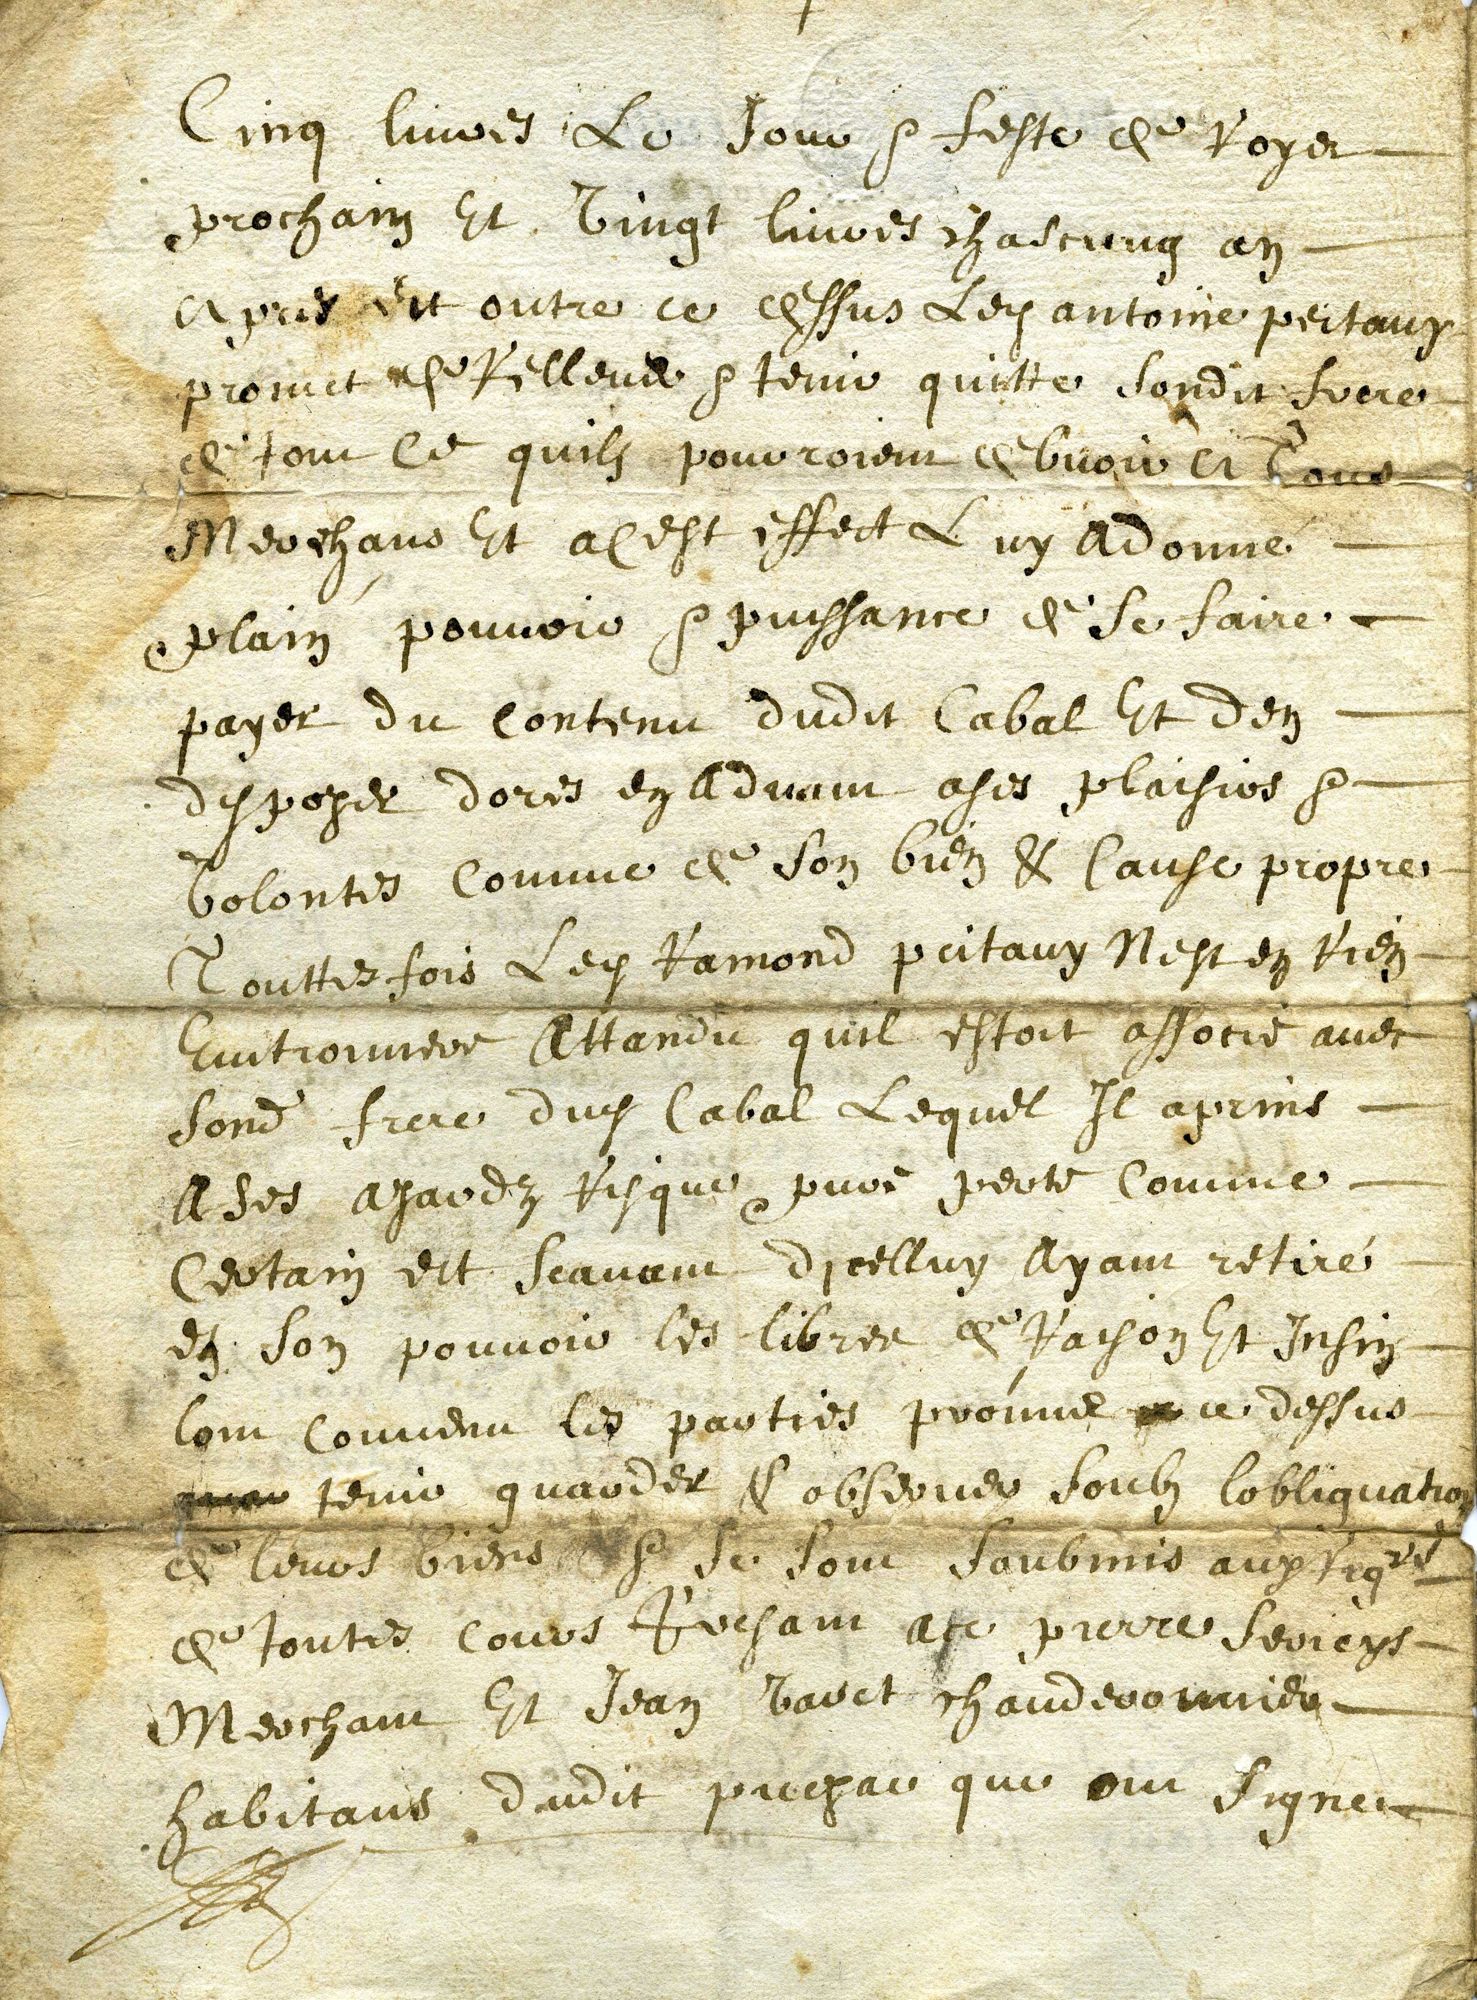 Cinq livres Le Jour & feste de Royes
prochain Et Vingt livres chascung an
apres Et outre ce dessus Led antoine peitavy
promet de Relleve & tenir quitte sondit frere
de tout Ce quilz pourroient debvoir a Tous
Merchans Et a Cest effect Luy A donné
plain pouvoir & puissance de se faire
payer du Contenu dudit Cabal Et den
disposer dores en Advant a ses plaisirs &
volontes Comme de son bien & Cause propre
Touttesfois Led Ramond peitavy Nest en Rien
Attandu quil estoit associé avec
sond frere dud Cabal Lequel Il a prins
A Ses asardz Risque pure perte Comme
Certain Et scavant dicelluy Ayant retiré
en son pouvoir les libres de Raison Et Insin
lont Convenu les parties promis ce dessus
tenir guarder & observer soubz lobliguation
de leurs biens & se sont soubmis aux Rigrs
de toutes Cours presant a ce pierre
Merchant Et Jean chauderonnier
habitans dudit que ont signes